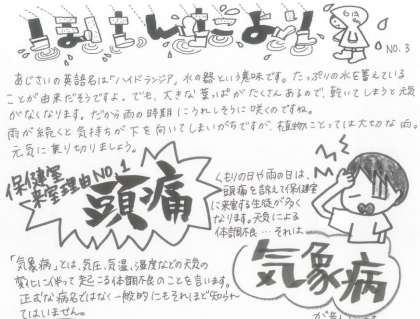 ほけんだより
6月
NO.3
あじさいの英語名は「ハイドランジア」水の器という意味です。たっぷりの水を蓄えている
ことが由来だそうですよ。でも、大きな葉っぱがたくさんあるので、乾いてしまうと元気
がなくなります。だから雨の時期にうれしそうに咲くのですね。
雨が続くと気持ちが下を向いてしまいがちですが、植物にとっては大切な雨。
元気に乗り切りましょう。
保健室
来室理由NO.1
頭痛
くもりの日や雨の日は、
頭痛を訴えて保健室
に来室する生徒が多く
なります。天気による
体調不良…それは
気象病
「気象病」とは、気圧、気温、湿度などの天気の
変化に伴って起こる体調不良のことを言います。
正式な病名ではなく一般的にもそれほど知られ
てはいません。